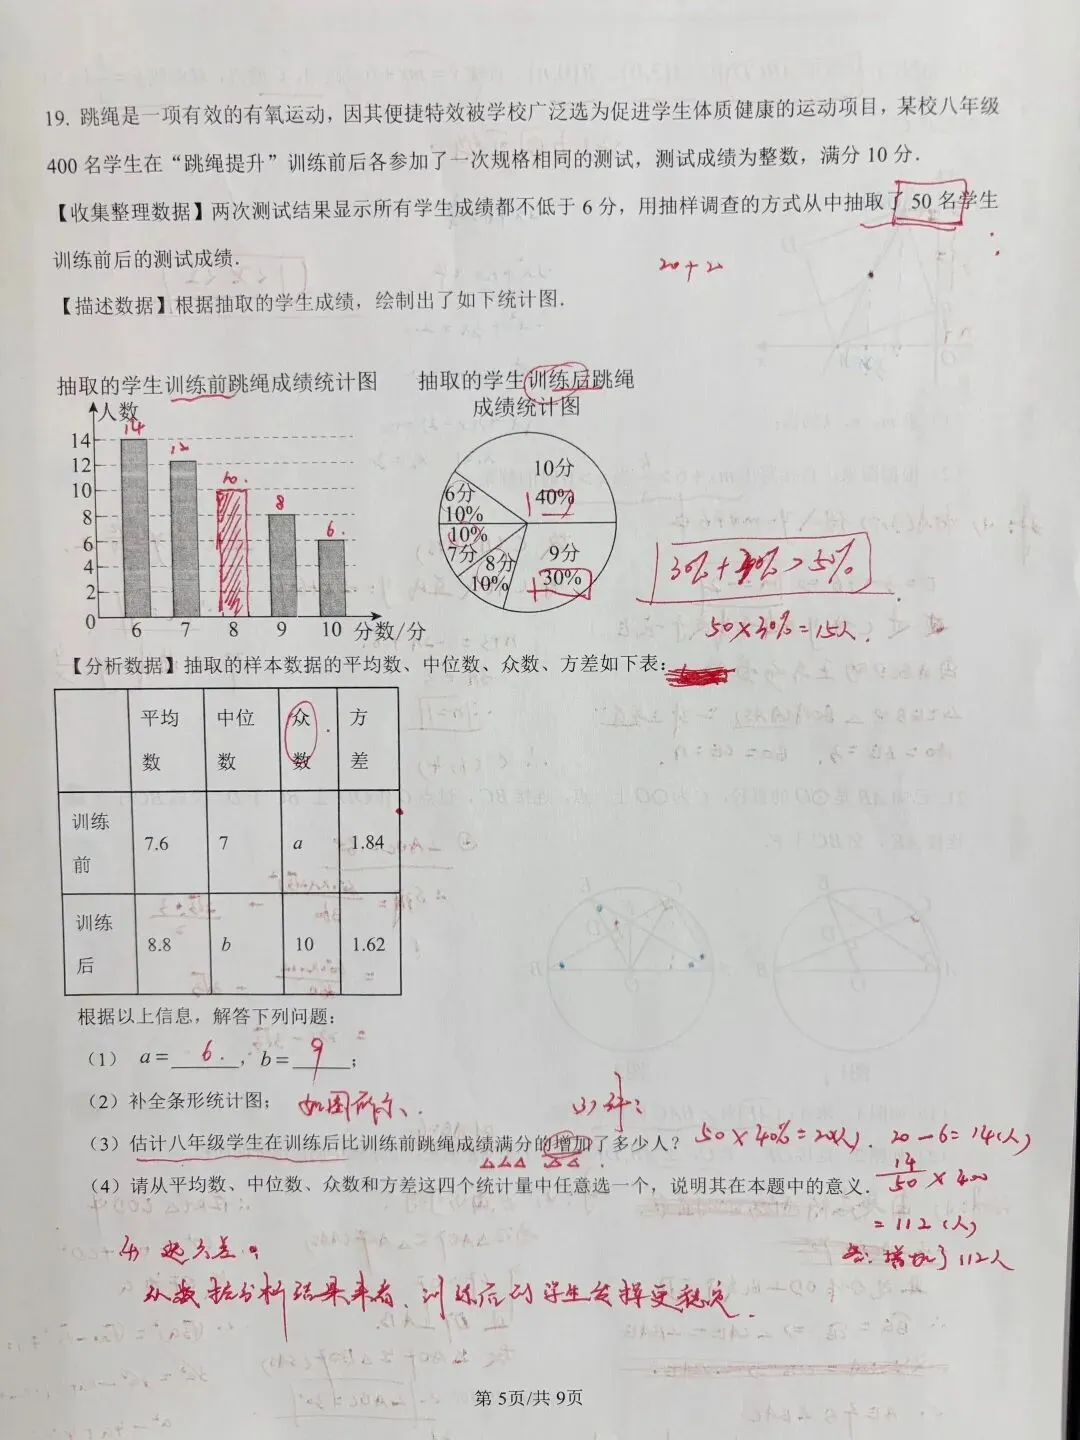 19. 跳绳是一项有效的有氧运动，因其便捷特效被学校广泛选为促进学生体质健康的运动项目，某校八年级
400 名学生在“跳绳提升”训练前后各参加了一次规格相同的测试，测试成绩为整数，满分 10 分．
【收集整理数据】两次测试结果显示所有学生成绩都不低于 6 分，用抽样调查的方式从中抽取了 50 名学生
训练前后的测试成绩．
20+2
【描述数据】根据抽取的学生成绩，绘制出了如下统计图．
抽取的学生训练前跳绳成绩统计图
人数
14
12
10
8
6
4
2
0
14
12
10.
8
6.
6 7 8 9 10 分数/分
抽取的学生训练后跳绳
成绩统计图
10分
40%
6分
10%
10%
7分
8分
10%
9分
30%
50×30%=15人.
【分析数据】抽取的样本数据的平均数、中位数、众数、方差如下表：
平均数 中位数 众数 方差
训练前 7.6 7 a 1.84
训练后 8.8 b 10 1.62
根据以上信息，解答下列问题：
（1） a= 6. ，b= 9 ；
（2）补全条形统计图； 如图所示、.
(3)解：
（3）估计八年级学生在训练后比训练前跳绳成绩满分的增加了多少人？ 50×40%=20(人). 20-6=14(人)
14/50×400
=112(人)
答：增加了112人
（4）请从平均数、中位数、众数和方差这四个统计量中任意选一个，说明其在本题中的意义．
(4) 选方差：
从数据分析结果来看，训练后的学生发挥更稳定.
第 5页/共 9页